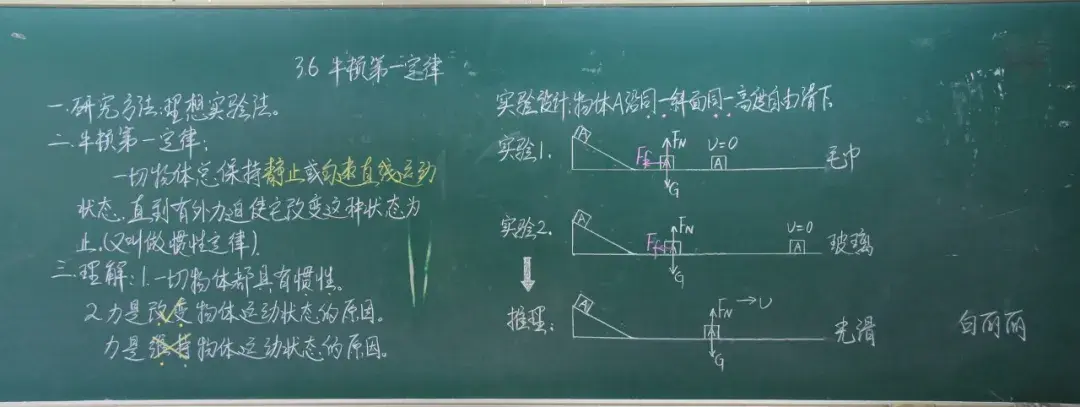 3.6 牛顿第一定律
一.研究方法:理想实验法。
二.牛顿第一定律:
一切物体总保持静止或匀速直线运动
状态,直到有外力迫使它改变这种状态为
止.(又叫做惯性定律).
三.理解:1.一切物体都具有惯性。
2.力是改变物体运动状态的原因。
力是维持物体运动状态的原因。
实验设计:物体A沿同一斜面同一高度自由滑下.
实验1. A Ff A FN G υ=0 A 毛巾
实验2. A Ff A FN G υ=0 A 玻璃
推理: A FN A G →υ 光滑
白丽丽